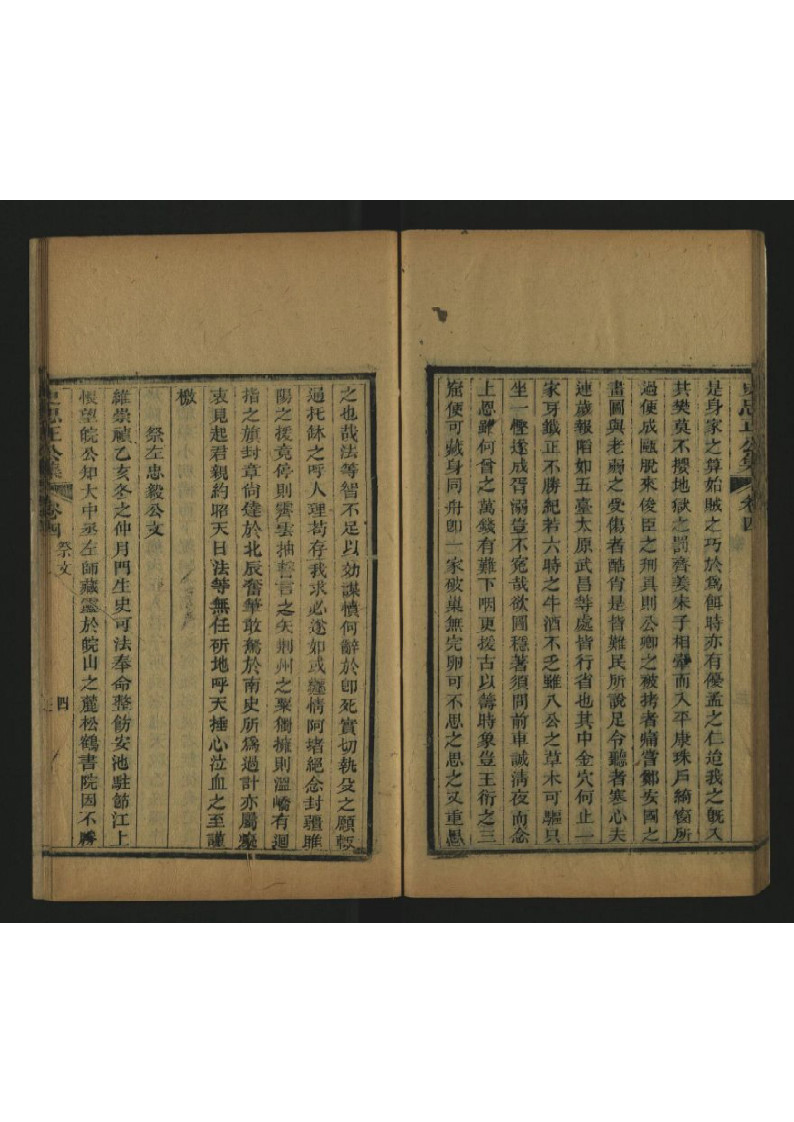 是身家之算始賊之巧於為餌時亦有優孟之仁迨我之旣入
其樊莫不攖地獄之罰齊姜宋子相牽而入平康珠戶綺窗所
過便成甌脫來俊臣之刑具則公卿之被拷者痛嘗鄭安國之
畫圖與老弱之受傷者酷肖是皆難民所說足令聽者寒心夫
連歲報陷如五臺太原武昌等處皆行省也其中金穴何止一
家牙籤正不勝紀若六時之牛酒不乏雖八公之草木可驅只
坐一慳遂成胥溺豈不冤哉欲圖穩著須問前車誠淸夜而念
上恩雖何曾之萬錢有難下咽更援古以籌時象豈王衍之三
窟便可藏身同舟卽一家破巢無完卵可不思之思之又重思
史忠正公集 卷四
之也哉法等智不足以効謀憤何辭於卽死實切執殳之願輒
通托鉢之呼人理苟存我求必遂如或纏情阿堵絕念封疆睢
陽之援竟停則霽雲抽誓言之矢荆州之粟獨擁則溫嶠有迴
指之旗封章尙達於北辰奮筆敢駕於南史所爲過計亦屬
衷見起君親約昭天日法等無任斫地呼天捶心泣血之至謹
檄
祭左忠毅公文
維崇禎乙亥冬之仲月門生史可法奉命整飭安池駐節江上
悵望皖公知大中丞左師藏靈於皖山之麓松鶴書院因不勝
史忠正公集 卷四 祭文 四